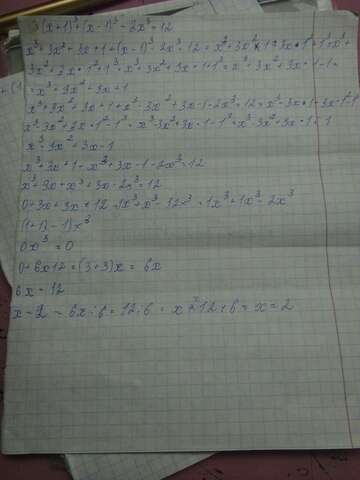 (x+1)³+(x-1)³-2x³=12
x³+3x²+3x+1+(x-1)³-2x³=12=x³+3x²×1+3x×1²+1³=x³+
3x²+3x×1²+1³=x³+3x²+3x×1+1³=x³+3x²+3x×1=1=
=x³+3x²+3x+1
x³+3x²+3x+1+x³-3x²+3x-1-2x³=12=x³-3x×1+3x×1²-1³
x³-3x²+3x×1²-1³=x³-3x²+3x×1-1³=x³-3x²+3x×1-1
x³-3x²+3x-1
x³+3x+1+x³+3x-1-2x³=12
x³+3x+x³+3x-2x³=12
0+3x+3x=12=1x³+x³-12x³=1x³+1x³-2x³
(1+1)-1)x³
0x³=0
0+6x12=(3+3)x=6x
6x=12
x=2=6x:6=12:6=x=12÷6=x=2